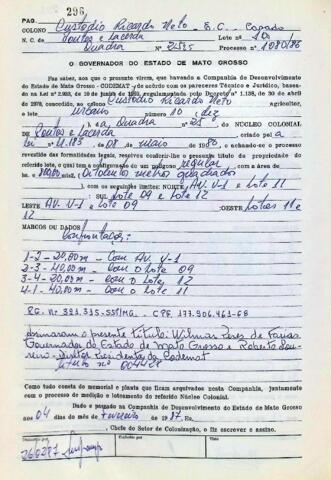 296
PAG.
COLONO Custodio Ricardo Neto - E.C. Casado
N. C. de Pontes e Lacerda Lote nº 10
Quadra Nº 25 Processo nº 1080/86
O GOVERNADOR DO ESTADO DE MATO GROSSO
Faz saber, aos que o presente virem, que havendo a Companhia de Desenvolvimento
do Estado de Mato Grosso - CODEMAT - de acordo com os pareceres Técnico e Jurídico, basea-
na Lei nº 2.093, de 19 de junho de 1963, regulamentada pelo Decreto nº 1.138, de 30 de abril
de 1970, concedido, ao colono Custodio Ricardo Neto agricultor,
o lote urbano número 10 dez
, da Quadra nº 25 do NÚCLEO COLONIAL
de Pontes e Lacerda criado pela
Lei nº 4.183, de 08 de maio de 1980, e achando-se o processo
revestido das formalidades legais, resolveu conferir-lhe o presente título de propriedade
referido lote, o qual tem a configuração de um polígono regular com a área de
800,00 (Oitocentos metros quadrados
), com os seguintes limites: NORTE AV. V-1 e Lote 11
SUL Lote 09 e Lote 12
LESTE AV. V-1 e Lote 09 ;OESTE Lotes 11 e
12
MARCOS OU DADOS
Confrontações:
1-2 - 20,00m - Com AV. V-1
2-3 - 40,00m - Com o Lote 09
3-4 - 20,00m - Com o Lote 12
4-1 - 40,00m - Com o Lote 11
RG. Nº 321.315-SSP/MG. - CPF. 177.906.461-68
Assinaram o presente título: Wilmar Peres de Farias
Governador do Estado de Mato Grosso e Roberto
Diretor Presidente da Codemat
Título nº 004428
Como tudo consta do memorial e planta que ficam arquivados nesta Companhia, juntamente
com o processo de medição e loteamento do referido Núcleo Colonial.
Dado e passado na Companhia de Desenvolvimento do Estado de Mato Grosso
aos 04 dias do mês de fevereiro de 1987. Eu,
, Chefe do Setor de Colonização, o fiz escrever e assino.
26.02.87